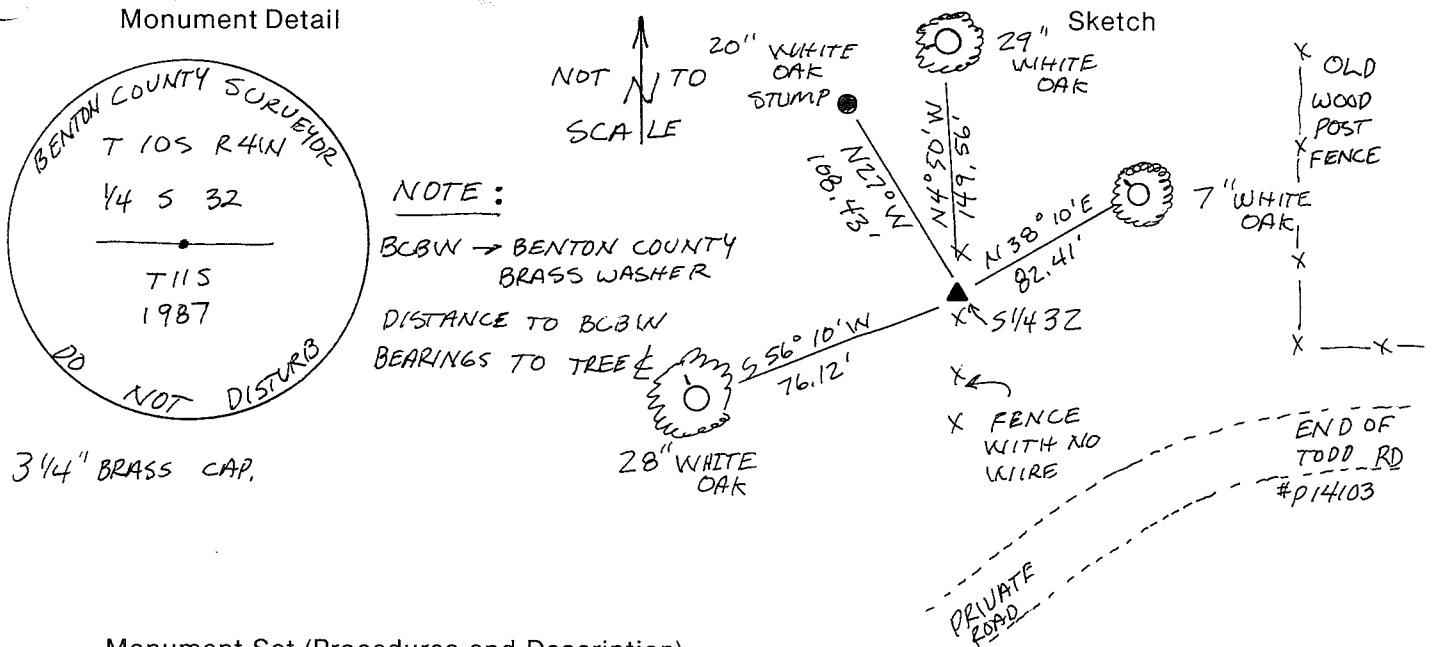 Monument Detail
BENTON COUNTY SURVEYOR
T 10S R4W
1/4 S 32
T11S
1987
DO NOT DISTURB
3 1/4" BRASS CAP.
NOTE:
BCBW → BENTON COUNTY
BRASS WASHER
DISTANCE TO BCBW
BEARINGS TO TREE ℄
Sketch
NOT N TO
SCALE
20" WHITE
OAK
STUMP
29"
WHITE
OAK
N27°W
108.43'
N4°50'W
149.56'
N38°10'E
82.41'
7" WHITE
OAK
S1/4 32
S56°10'W
76.12'
28" WHITE
OAK
FENCE
WITH NO
WIRE
OLD
WOOD
POST
FENCE
END OF
TODD RD
#P14103
PRIVATE
ROAD
Monument Set (Procedures and Description)